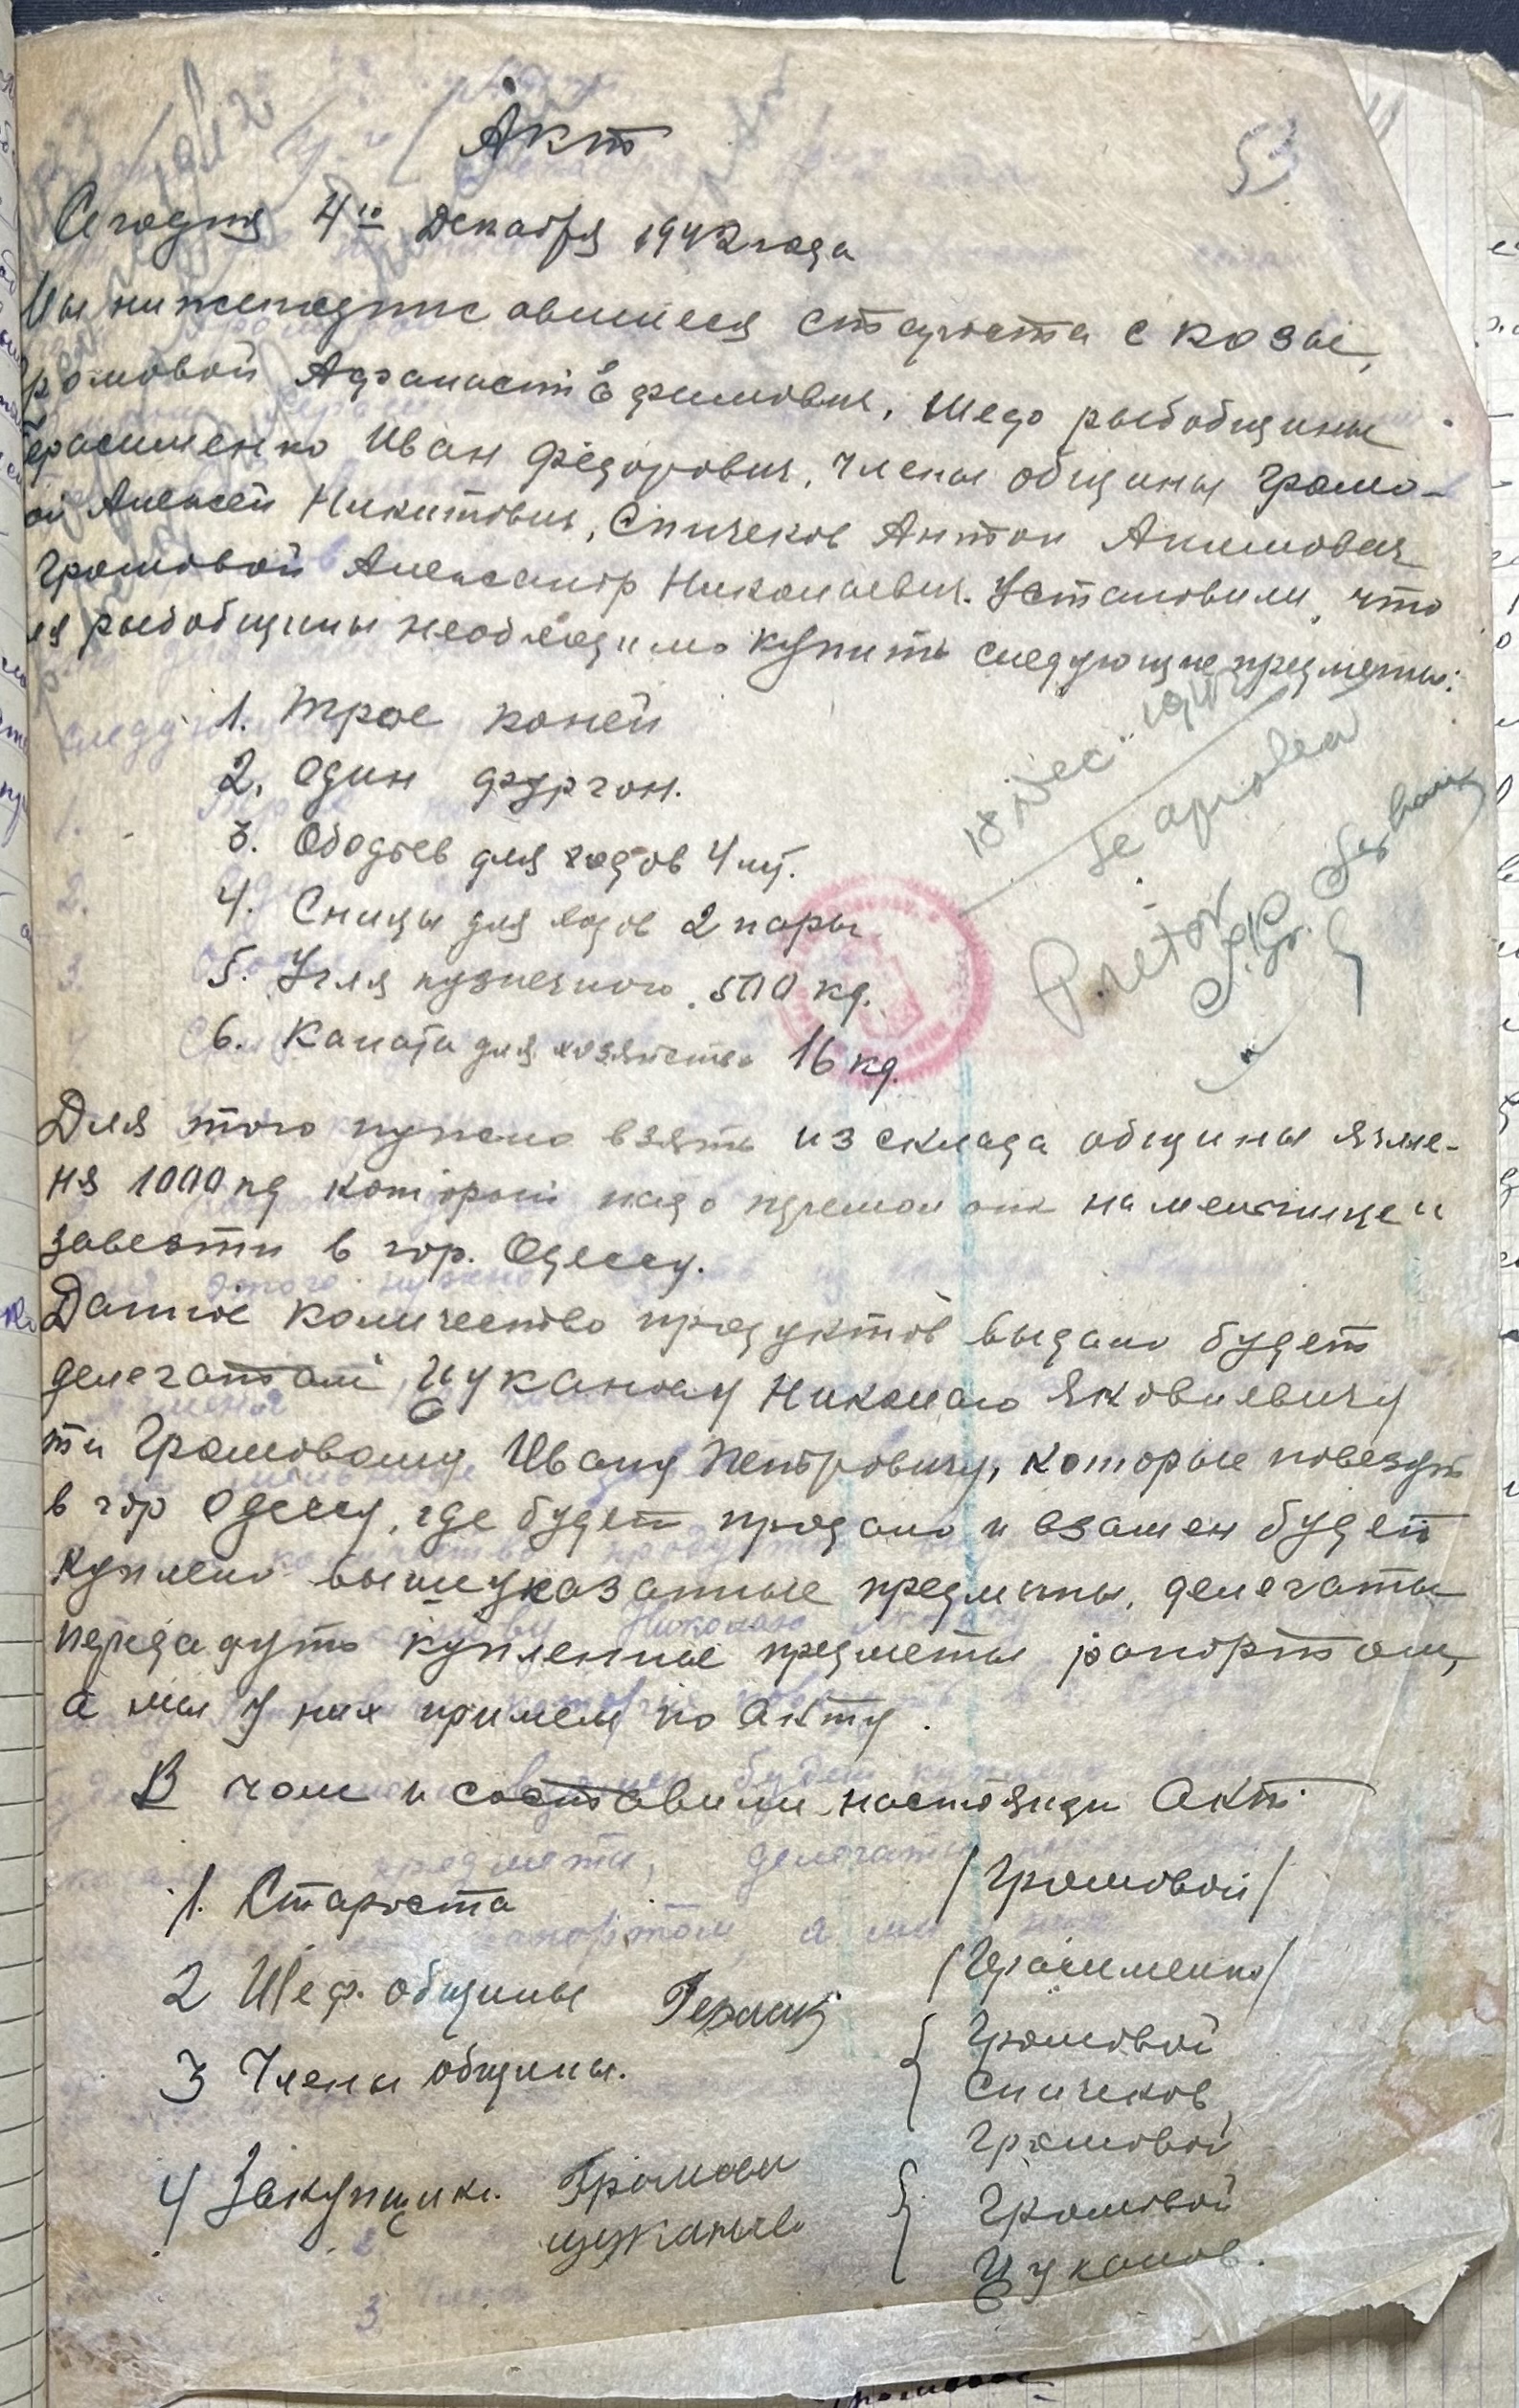 53
Акт
Сегодня 4го Декабря 1942 года
Мы нижеподписавшиеся староста с Козы,
Громовой Афанасий Ефимович, Шеф рыбобщины
Герасименко Иван Федорович, члены общины Громо-
ой Алексей Никитович, Спичеков Антон Акимович
Громовой Александр Николаевич. Установили, что
ля рыбобщины необходимо купить следующие предметы:
1. Трое коней
2. Один фургон.
3. Ободьев для ходов 4 шт.
4. Сницы для ходов 2 пары
5. Угля кузнечного 500 кг.
6. Каната для хозяйства 16 кг.
18 Dec. 1942
Se aproba
Pretor
Для того нужно взять из склада общины ячме-
ня 1000 кг который надо перемолоть на мельнице и
завезти в гор. Одессу.
Данное количество продуктов выдано будет
делегатам Цуканову Николаю Яковлевичу
ти Громовому Ивану Петровичу, которые повезут
в гор Одессу, где будет продано и взамен будет
куплено вышеуказанные предметы, делегаты
передадуть купленные предметы рапортом,
а мы у них примем по Акту.
В чом и составили настоящи Акт
1. Староста /Громовой/
2 Шеф. общины Герасик /Герасименко/
3 Члены общины. Громовой
Спичеков,
Громовой
4 Закупщики. Громовой Громовой
Цуканов Цуканов.